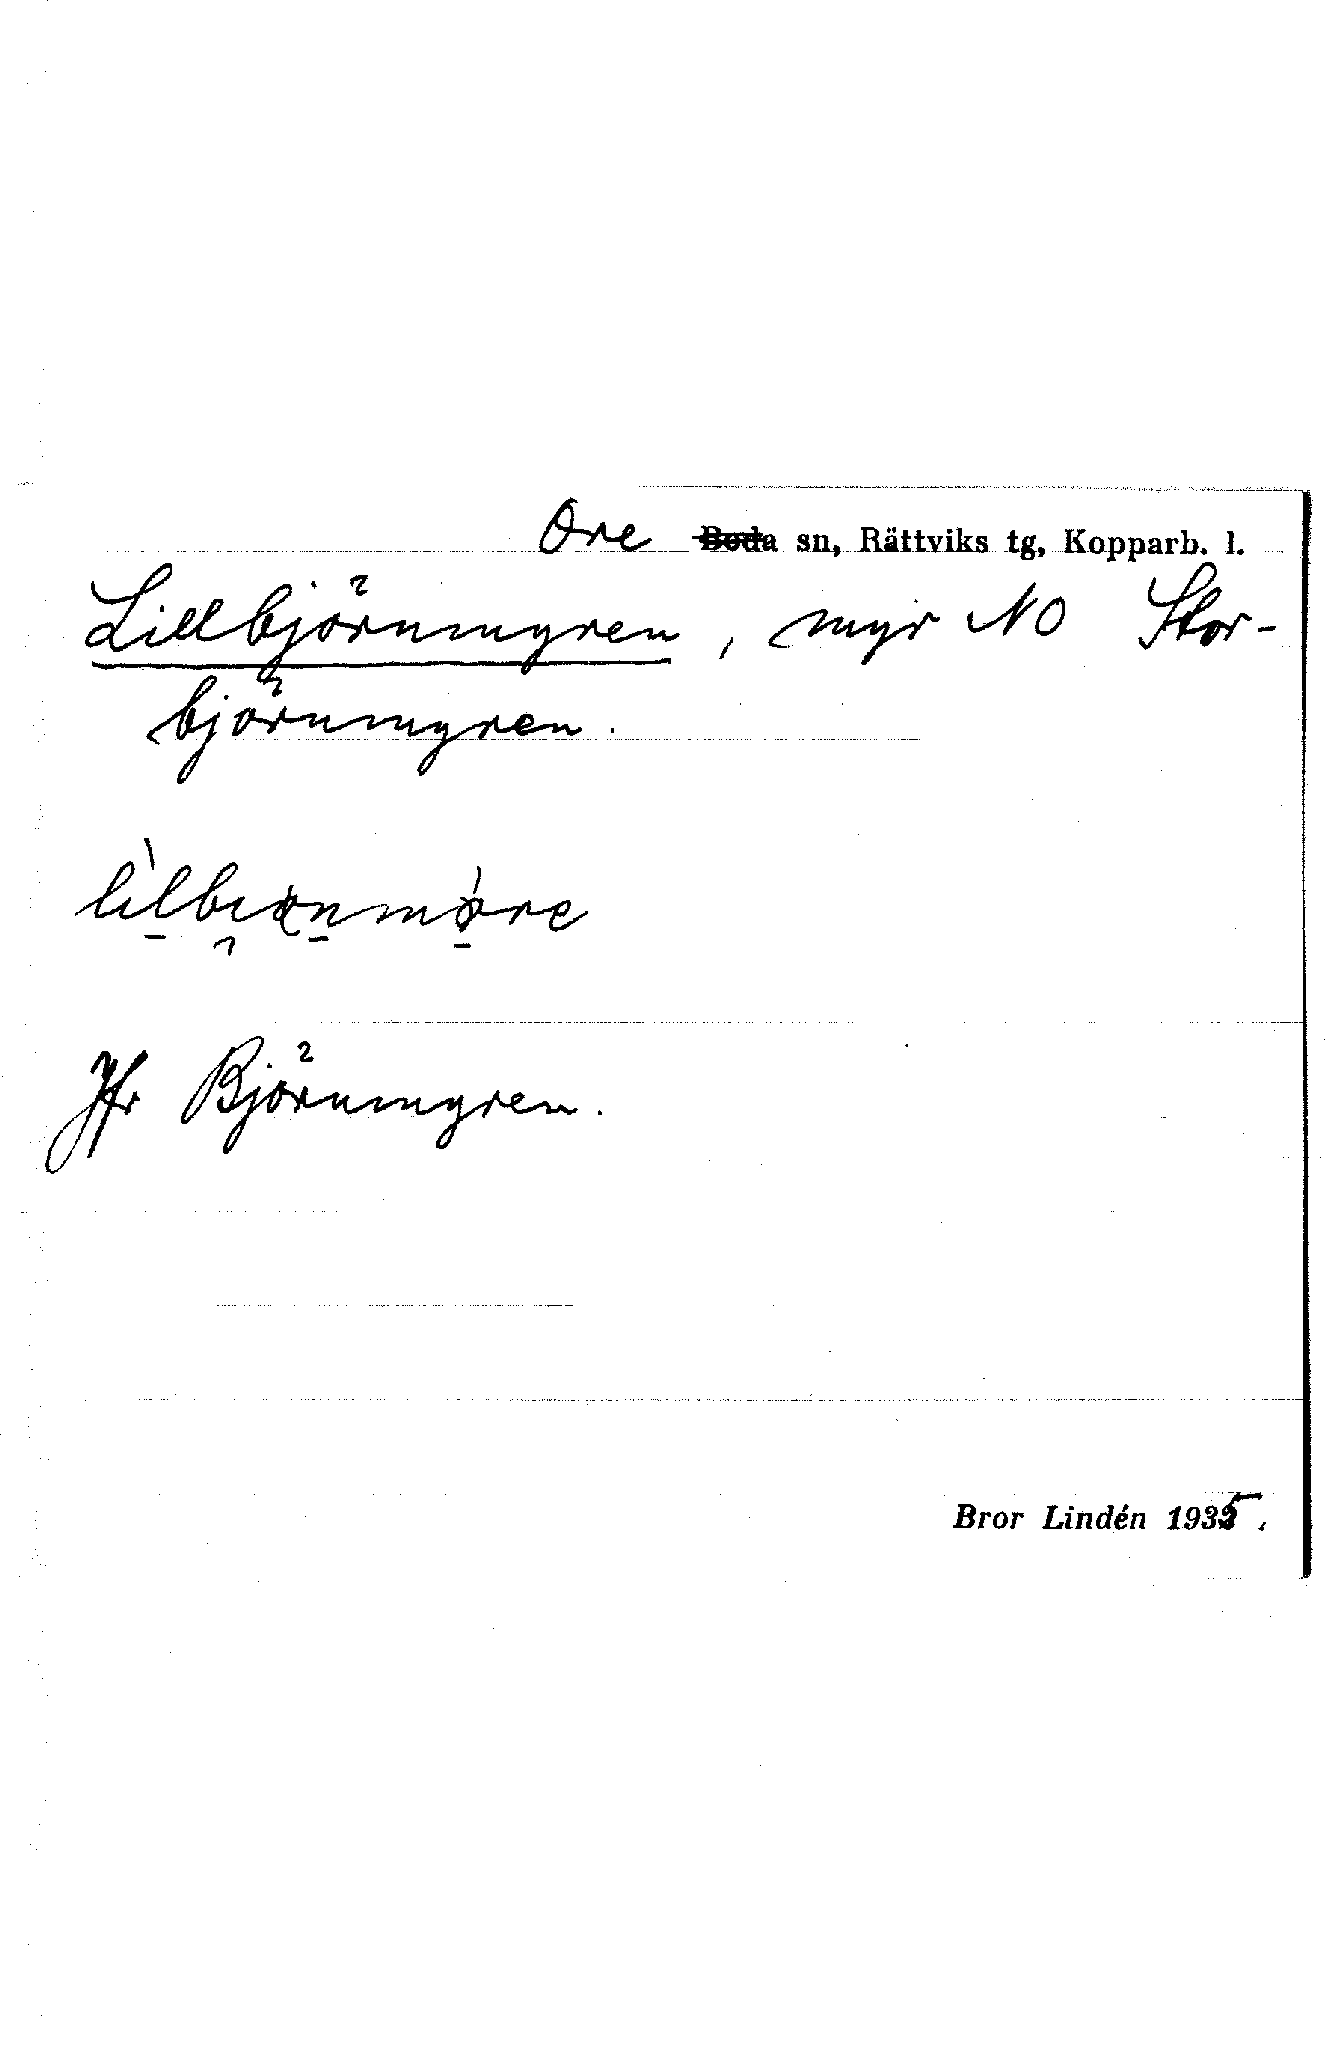 Ore Boda sn, Rättviks tg, Kopparb. l.
Lillbjörnmyren, myr NO Stor-
björnmyren.
Jfr Björnmyren.
Bror Lindén 1935.